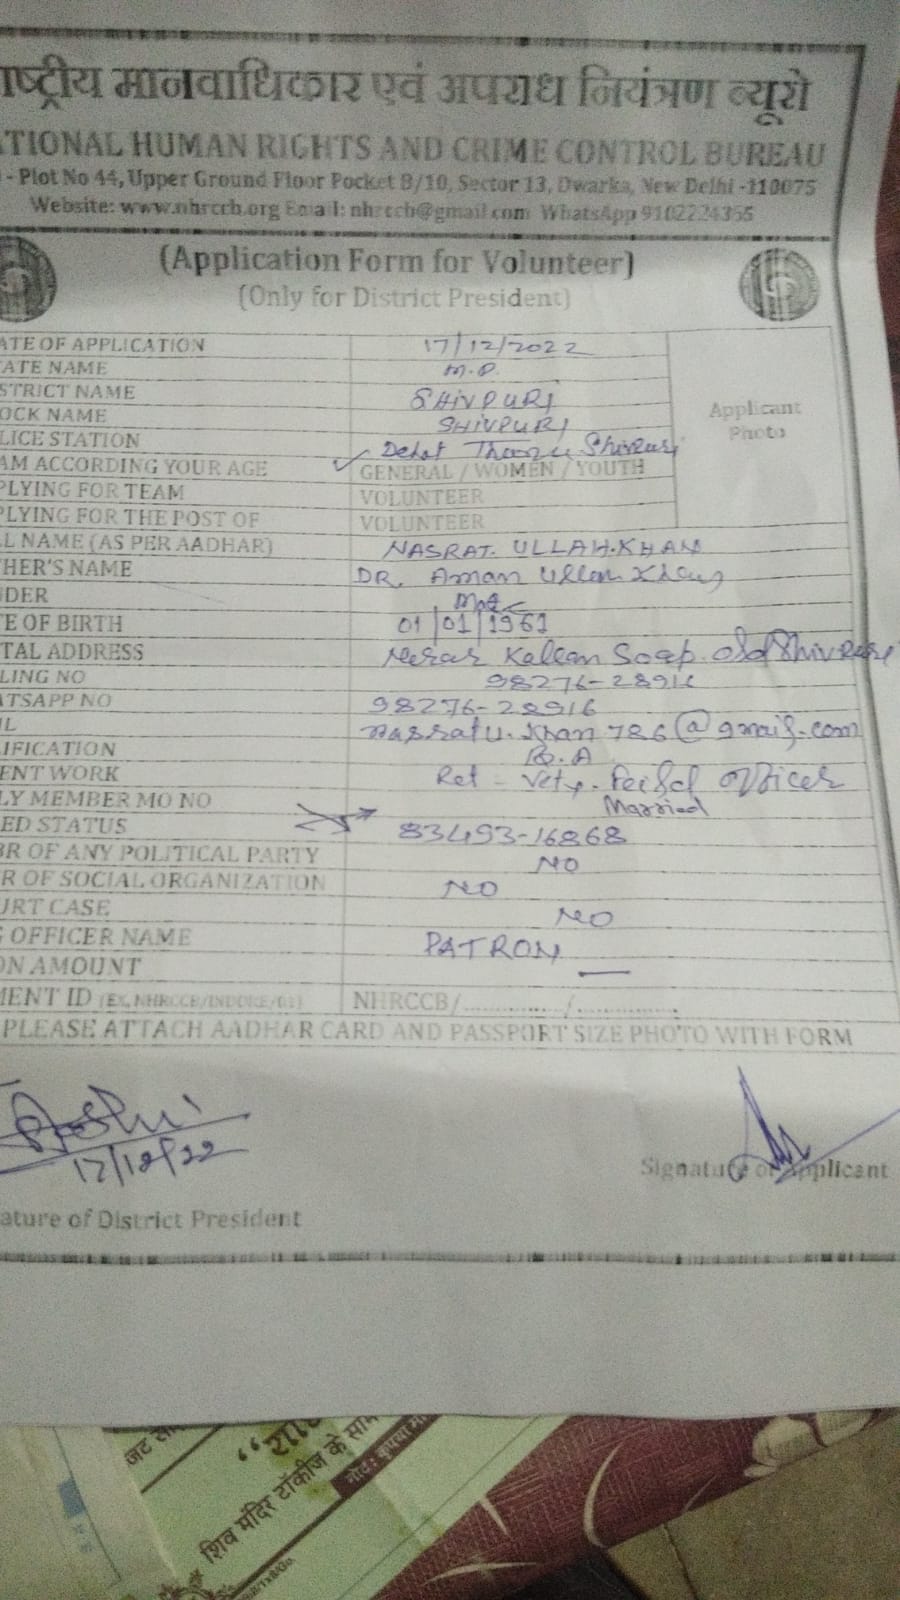 राष्ट्रीय मानवाधिकार एवं अपराध नियंत्रण ब्यूरो
ATIONAL HUMAN RIGHTS AND CRIME CONTROL BUREAU
- Plot No 44, Upper Ground Floor Pocket B/10, Sector 13, Dwarka, New Delhi -110075
Website: www.nhrccb.org Email: nhrccb@gmail.com WhatsApp 9102224365
(Application Form for Volunteer)
(Only for District President)
ATE OF APPLICATION 17/12/2022
ATE NAME M.P.
STRICT NAME SHIVPURI
OCK NAME SHIVPURI
Applicant
Photo
LICE STATION Dehat Shivpuri
AM ACCORDING YOUR AGE GENERAL / WOMEN / YOUTH
PLYING FOR TEAM VOLUNTEER
PLYING FOR THE POST OF VOLUNTEER
L NAME (AS PER AADHAR) NASRAT. ULLAH.KHAN
HER'S NAME DR. Aman Ullah Khan
NDER Male
E OF BIRTH 01/01/1961
TAL ADDRESS Near Old Shivpuri
LING NO 98276-28916
ATSAPP NO 98276-28916
IL nasratu.khan786@gmail.com
LIFICATION B.A
ENT WORK Ret - Vety. Field Officer
LY MEMBER MO NO Married
ED STATUS 83493-16868
BR OF ANY POLITICAL PARTY NO
R OF SOCIAL ORGANIZATION NO
URT CASE NO
G OFFICER NAME PATRON
ON AMOUNT —
MENT ID (EX. NHRCCB/INDORE/01) NHRCCB/............../..............
PLEASE ATTACH AADHAR CARD AND PASSPORT SIZE PHOTO WITH FORM
17/12/22
Signature of Applicant
ature of District President
शिव मंदिर टॉकीज के साम
नोट: कृपया